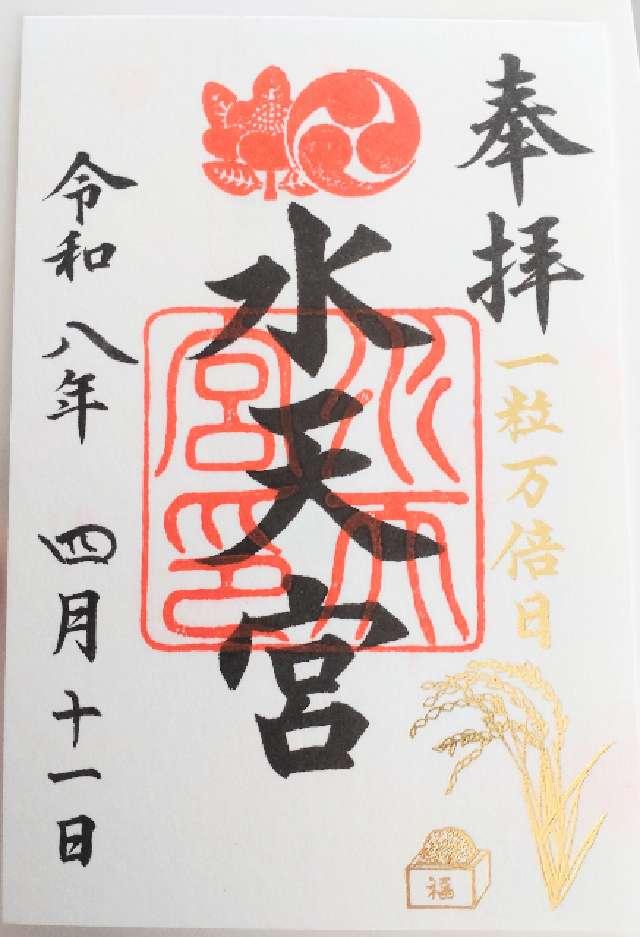 奉拝
一粒万倍日
水天宮
水天宮印
令和八年 四月十一日
福